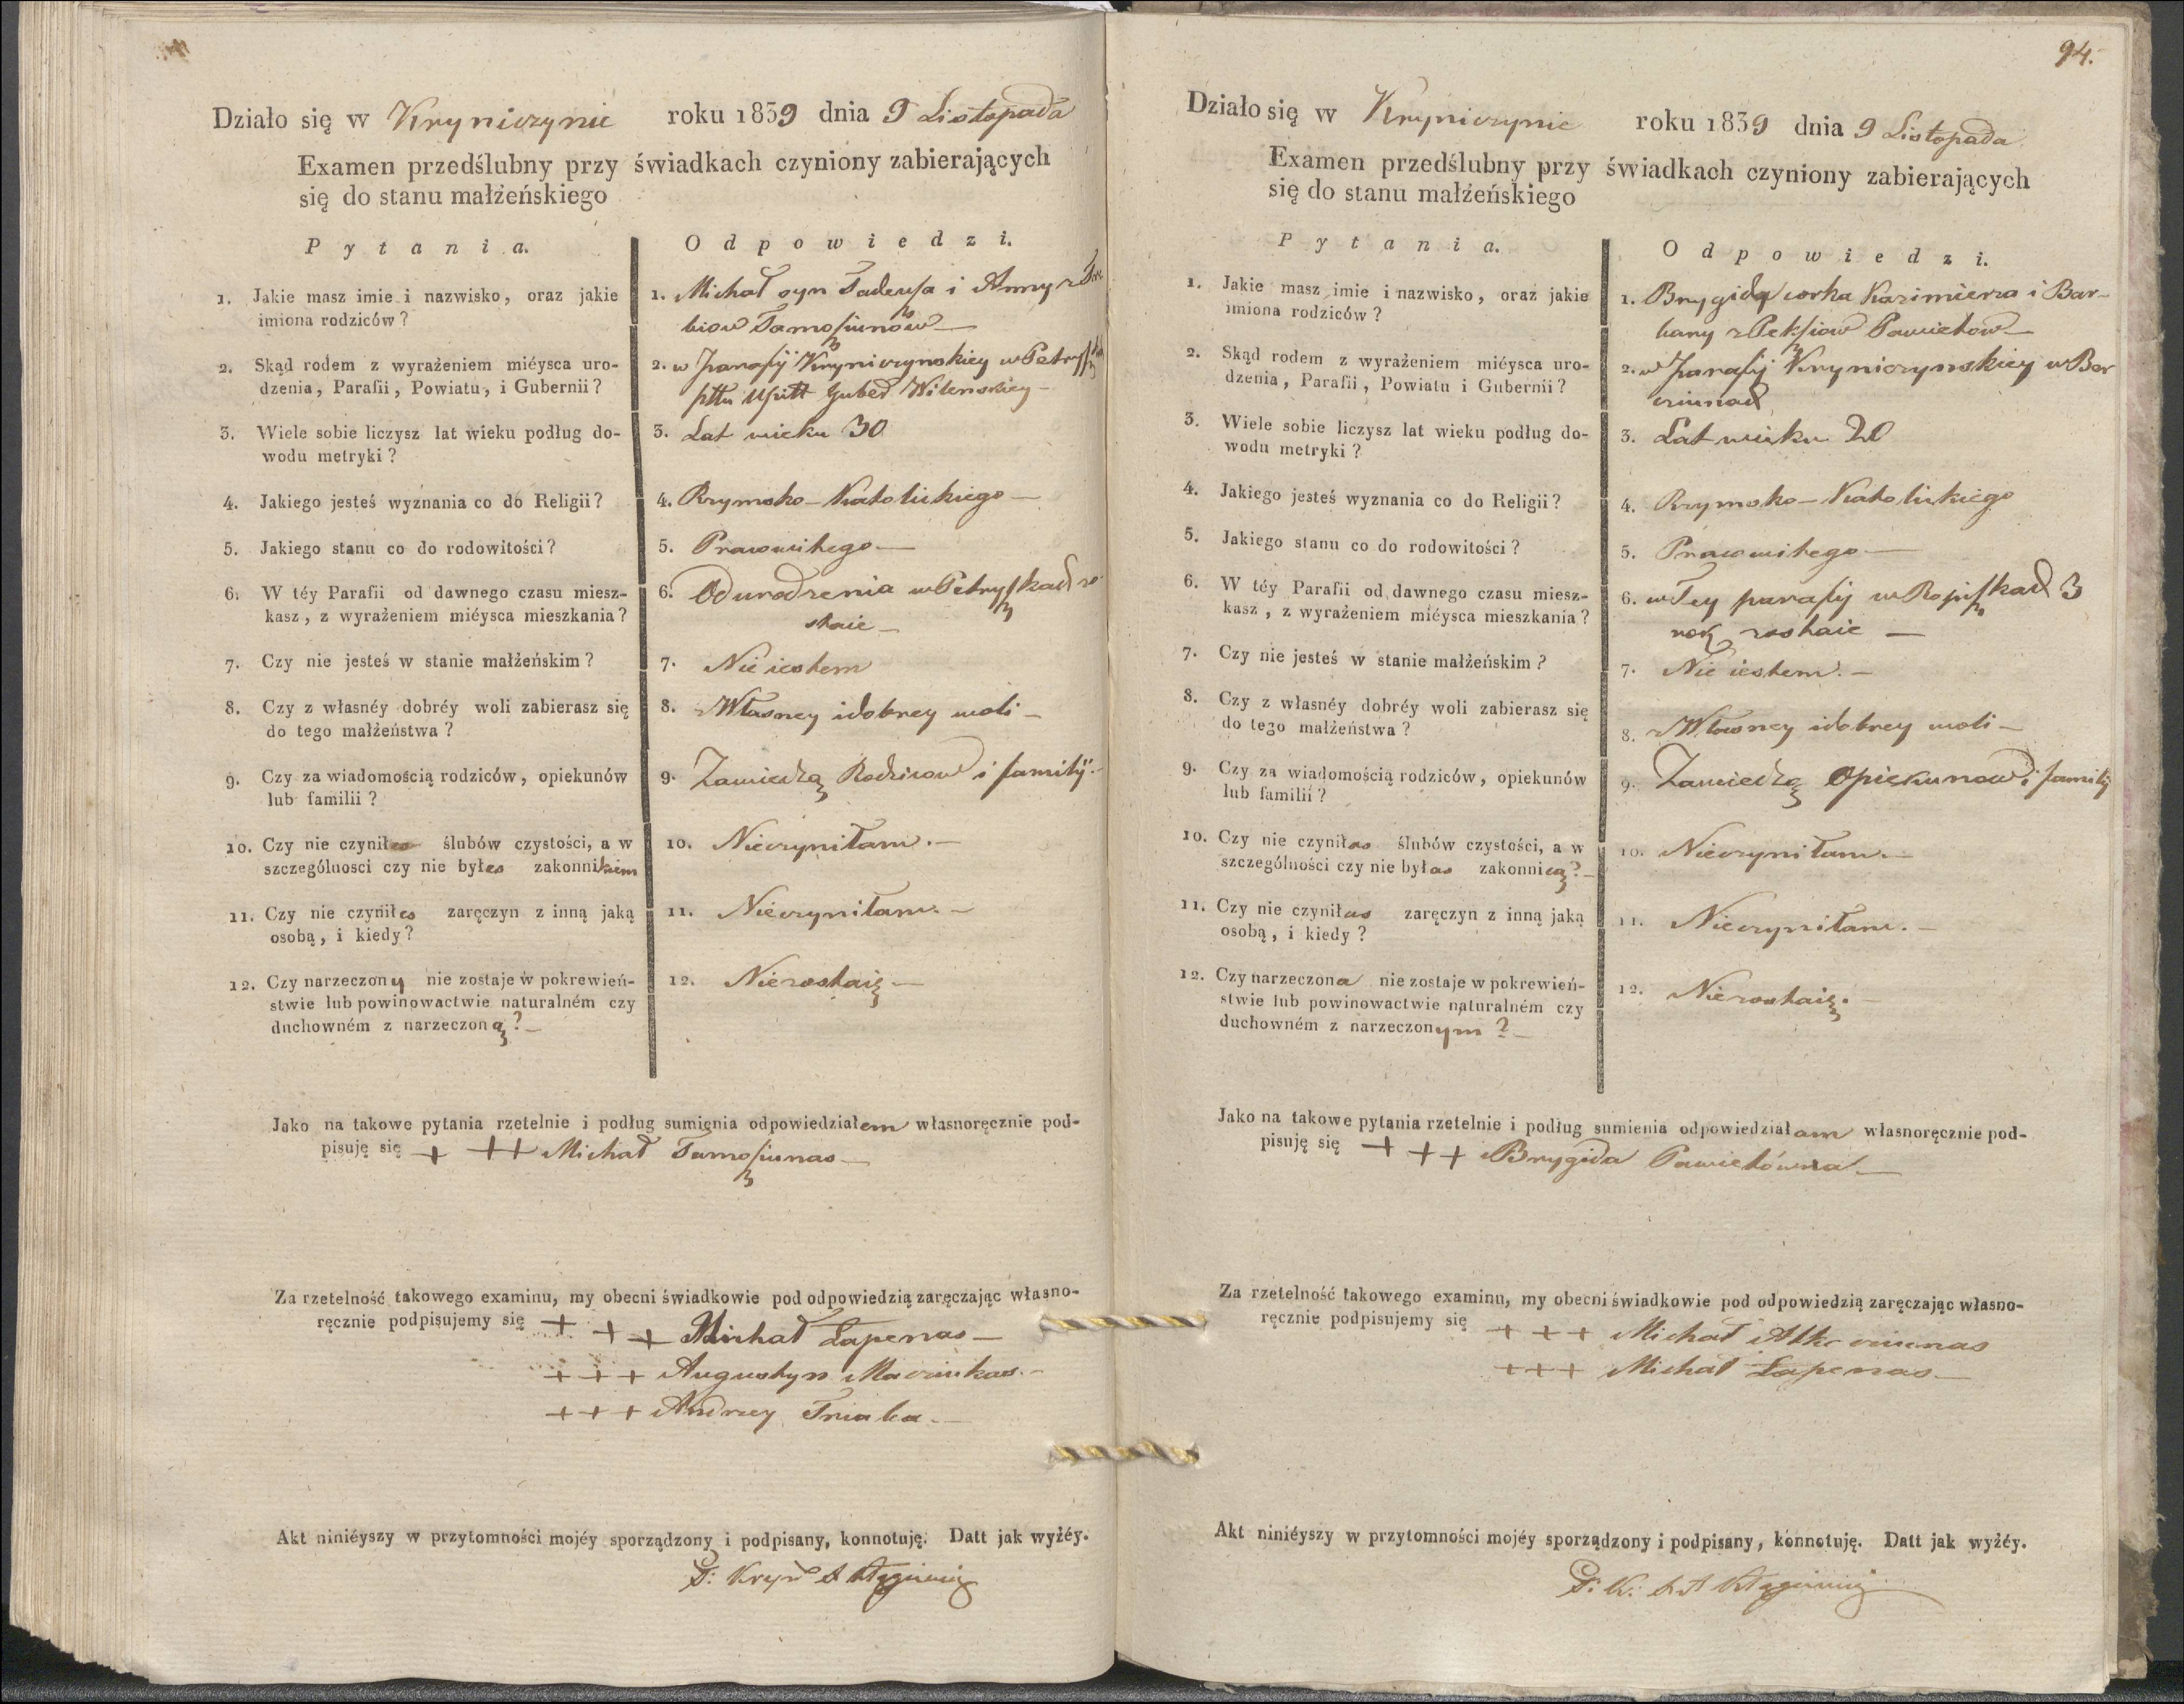 Działo się w Kryniczynie roku 1839 dnia 9 Listopada
Examen przedślubny przy świadkach czyniony zabierających
się do stanu małżeńskiego
Pytania. Odpowiedzi.
1. Jakie masz imie i nazwisko, oraz jakie
imiona rodziców?
1. Michał syn Tadeusza i Anny z
biow Tamoszunow
2. Skąd rodem z wyrażeniem miéysca uro-
dzenia, Parafii, Powiatu, i Gubernii?
2. w Parafij Kryniczynskiey w
pttu Upitt Guber Wilenskiey
3. Wiele sobie liczysz lat wieku podług do-
wodu metryki?
3. Lat wieku 30
4. Jakiego jesteś wyznania co do Religii?
4. Rzymsko-Katolickiego
5. Jakiego stanu co do rodowitości?
5. Prawowitego
6. W téy Parafii od dawnego czasu miesz-
kasz, z wyrażeniem miéysca mieszkania?
6. Od urodzenia w Petryszkach zo
staie
7. Czy nie jesteś w stanie małżeńskim?
7. Nie iestem
8. Czy z własnéy dobréy woli zabierasz się
do tego małżeństwa?
8. z Własney i dobrey woli
9. Czy za wiadomością rodziców, opiekunów
lub familii?
9. Zawiedzą Rodzicow i familij
10. Czy nie czyniłes ślubów czystości, a w
szczególnosci czy nie byłes zakonnikiem
10. Nieczyniłam.
11. Czy nie czyniłes zaręczyn z inną jaką
osobą, i kiedy?
11. Nieczyniłam.
12. Czy narzeczony nie zostaje w pokrewień-
stwie lub powinowactwie naturalném czy
duchowném z narzeczoną?
12. Niezostaię
Jako na takowe pytania rzetelnie i podług sumienia odpowiedziałem własnoręcznie pod-
pisuję się + ++ Michał Tamoszunas
Za rzetelność takowego examinu, my obecni świadkowie pod odpowiedzią zaręczając własno-
ręcznie podpisujemy się + + + Michał Łapenas
+++ Augustyn Marcinkas
+++ Andrzey
Akt niniéyszy w przytomności mojéy sporządzony i podpisany, konnotuję. Datt jak wyżéy.
94.
Działo się w Kryniczynie roku 1839 dnia 9 Listopada
Examen przedślubny przy świadkach czyniony zabierających
się do stanu małżeńskiego
Pytania. Odpowiedzi.
1. Jakie masz imie i nazwisko, oraz jakie
imiona rodziców?
1. Brygida corka Kazimierza i Bar-
bary z Pekszow Pawietow
2. Skąd rodem z wyrażeniem miéysca uro-
dzenia, Parafii, Powiatu i Gubernii?
2. w Parafij Kryniczynskiey w Bar
ciunach
3. Wiele sobie liczysz lat wieku podług do-
wodu metryki?
3. Lat wieku 20
4. Jakiego jesteś wyznania co do Religii?
4. Rzymsko-Katolickiego
5. Jakiego stanu co do rodowitości?
5. Prawowitego
6. W téy Parafii od dawnego czasu miesz-
kasz, z wyrażeniem miéysca mieszkania?
6. w Tey parafij w 3
rok zostaie
7. Czy nie jesteś w stanie małżeńskim?
7. Nie iestem.
8. Czy z własnéy dobréy woli zabierasz się
do tego małżeństwa?
8. z Własney i dobrey woli
9. Czy za wiadomością rodziców, opiekunów
lub familii?
9. Zawiedzą Opiekunow i familij
10. Czy nie czyniłas ślubów czystości, a w
szczególności czy nie byłas zakonnicą?
10. Nieczyniłam.
11. Czy nie czyniłas zaręczyn z inną jaką
osobą, i kiedy?
11. Nieczyniłam.
12. Czy narzeczona nie zostaje w pokrewień-
stwie lub powinowactwie naturalném czy
duchowném z narzeczonym?
12. Niezostaię.
Jako na takowe pytania rzetelnie i podług sumienia odpowiedziałam własnoręcznie pod-
pisuję się + + + Brygida Pawietówna
Za rzetelność takowego examinu, my obecni świadkowie pod odpowiedzią zaręczając własno-
ręcznie podpisujemy się +++ Michał
+++ Michał Łapenas
Akt niniéyszy w przytomności mojéy sporządzony i podpisany, konnotuję. Datt jak wyżéy.